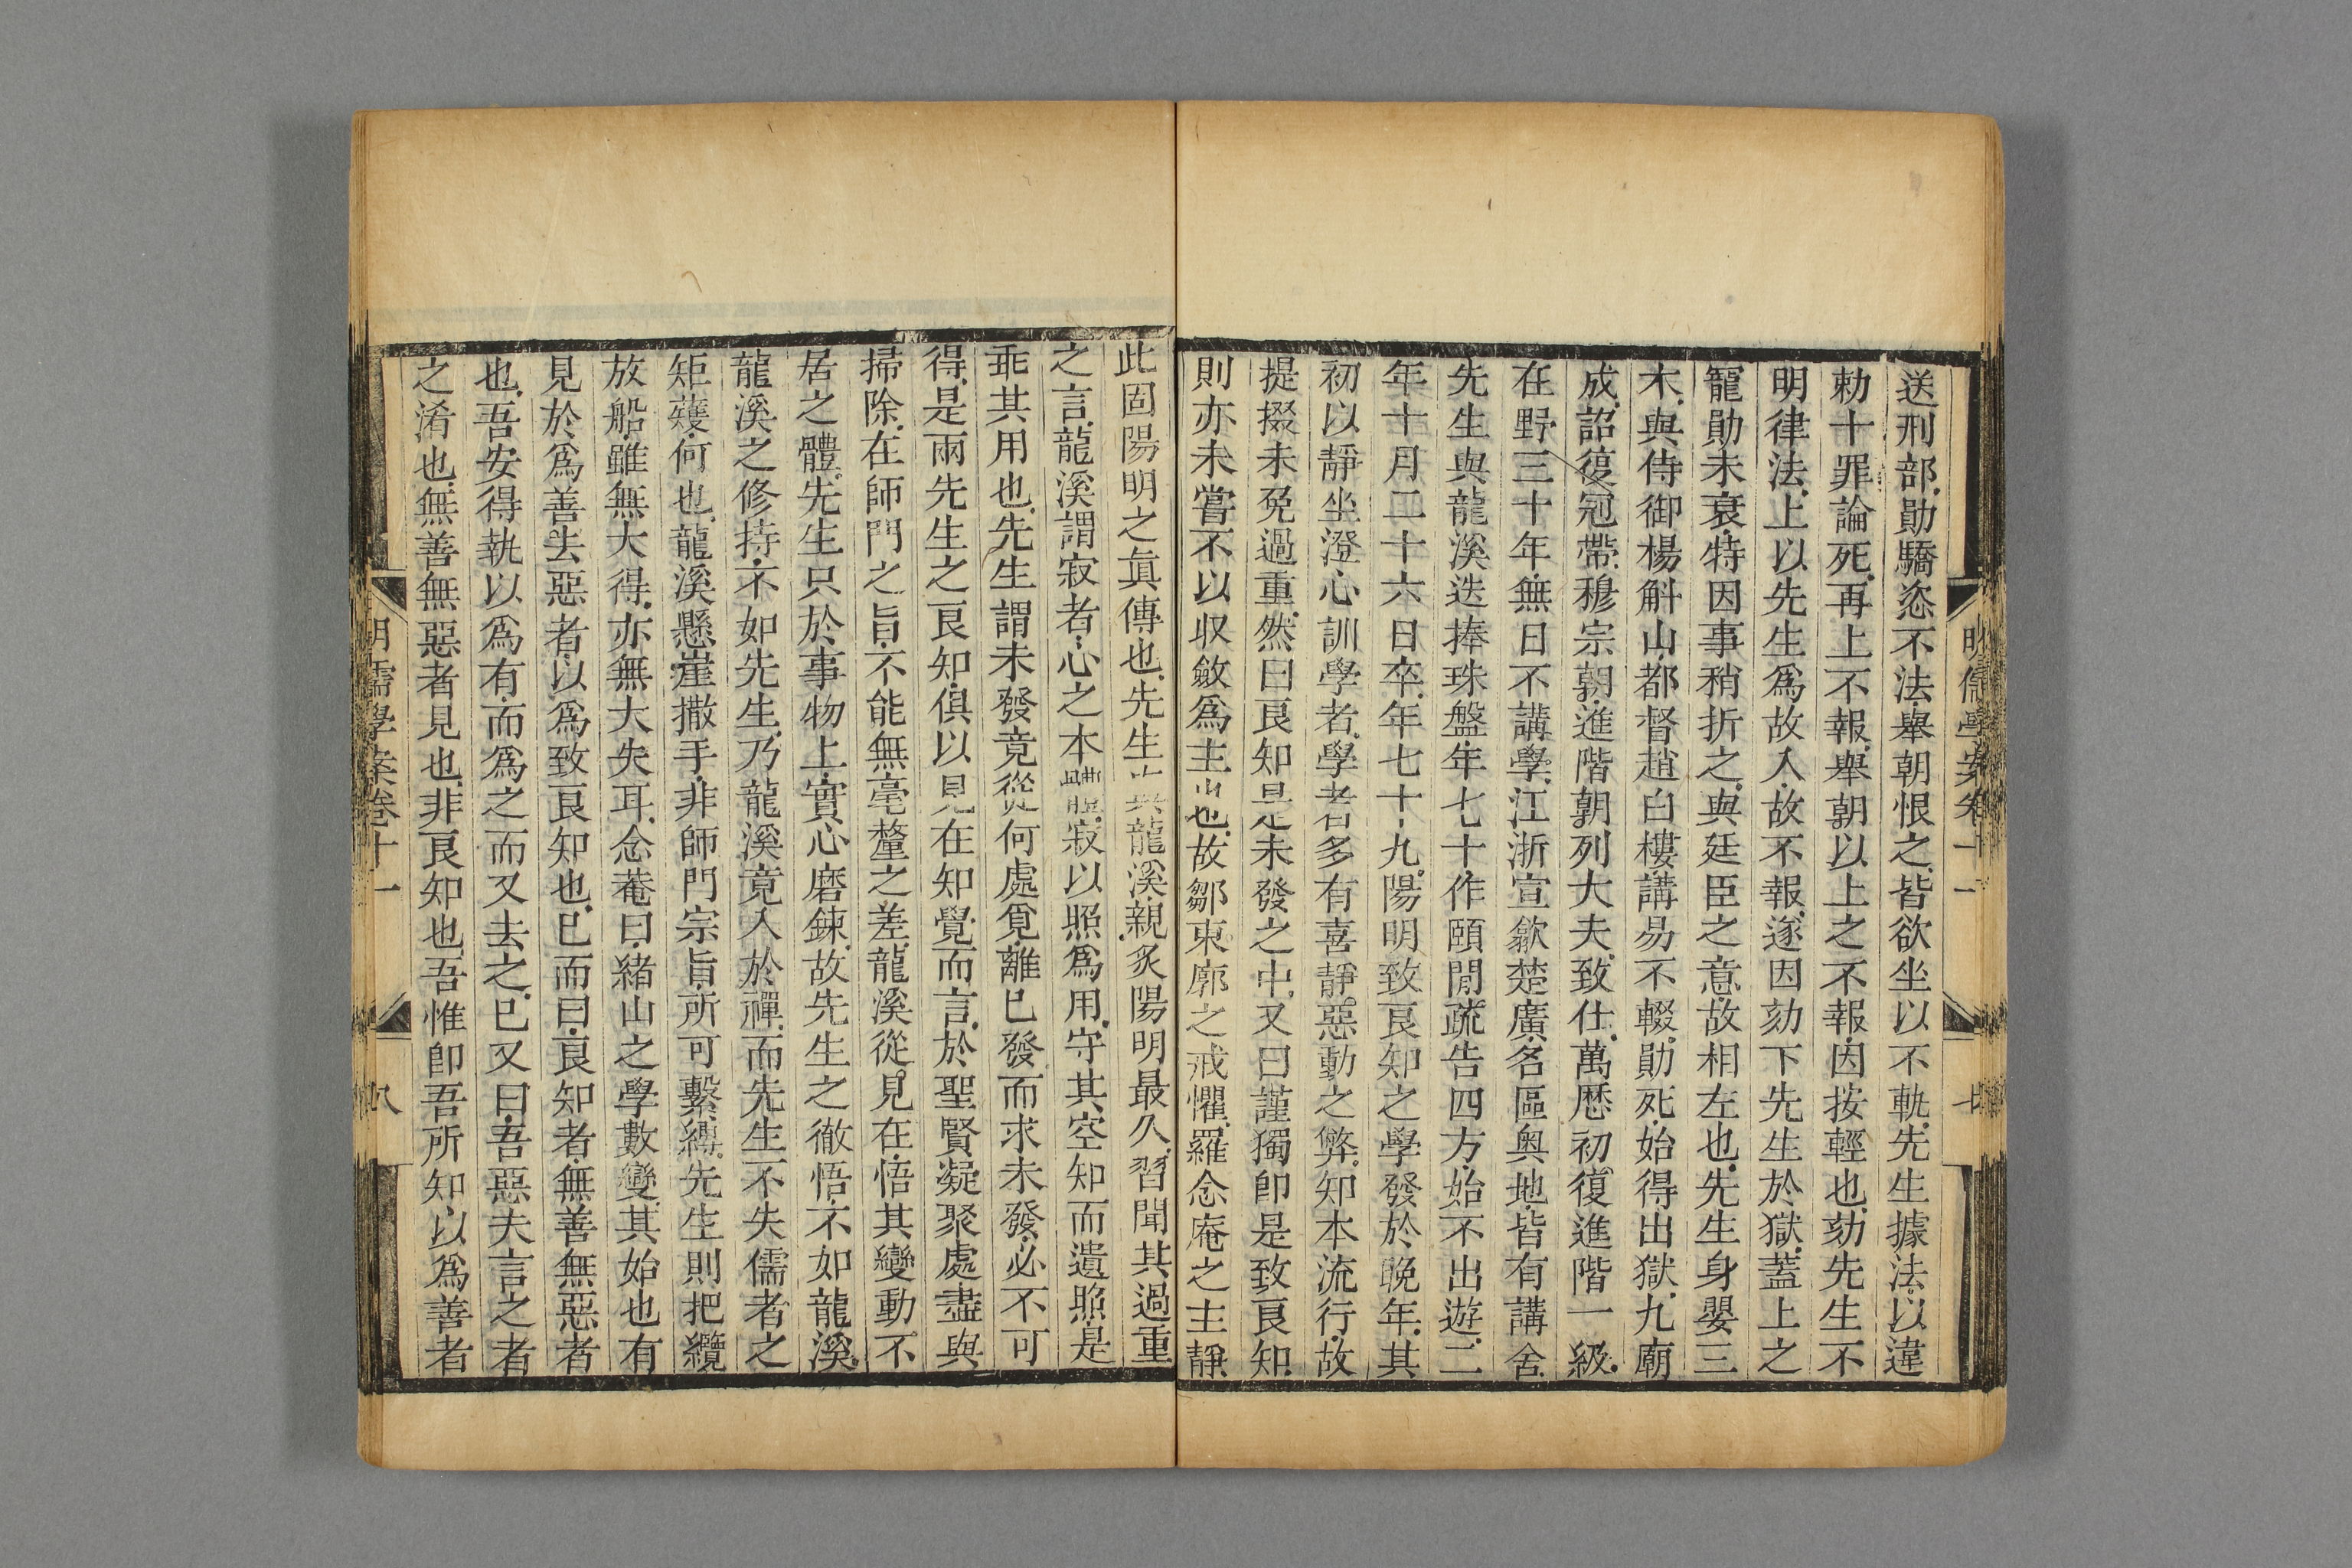 送刑部勛驕恣不法舉朝恨之皆欲坐以不軌先生據法以違
勅十罪論死再上不報舉朝以上之不報因按輕也劾先生不
明律法上以先生爲故入故不報遂因劾下先生於獄蓋上之
寵勛未衰特因事稍折之與廷臣之意故相左也先生身嬰三
木與侍御楊斛山都督趙白樓講易不輟勛死始得出獄九廟
成詔復冠帶穆宗朝進階朝列大夫致仕萬歷初復進階一級
在野三十年無日不講學江浙宣歙楚廣名區奥地皆有講舍
先生與龍溪迭捧珠盤年七十作頤閒疏告四方始不出遊二
年十月二十六日卒年七十九陽明致良知之學發於晚年其
初以靜坐澄心訓學者學者多有喜靜惡動之弊知本流行故
提掇未免過重然曰良知是未發之中又曰謹獨卽是致良知
則亦未嘗不以收斂爲主也故鄒東廓之戒懼羅念庵之主靜
此固陽明之眞傳也先生龍溪親炙陽明最久習聞其過重
之言龍溪謂寂者心之本體寂以照爲用守其空知而遺照是
乖其用也先生謂未發竟從何處覓離已發而求未發必不可
得是兩先生之良知俱以見在知覺而言於聖賢凝聚處盡與
掃除在師門之旨不能無毫釐之差龍溪從見在悟其變動不
居之體先生只於事物上實心磨鍊故先生之徹悟不如龍溪
龍溪之修持不如先生乃龍溪竟入於禪而先生不失儒者之
矩矱何也龍溪懸崖撒手非師門宗旨所可繫縛先生則把纜
放船雖無大得亦無大失耳念菴曰緒山之學數變其始也有
見於爲善去惡者以爲致良知也已而曰良知者無善無惡者
也吾安得執以爲有而爲之而又去之已又曰吾惡夫言之者
之淆也無善無惡者見也非良知也吾惟卽吾所知以爲善者
明儒學案卷十一
八